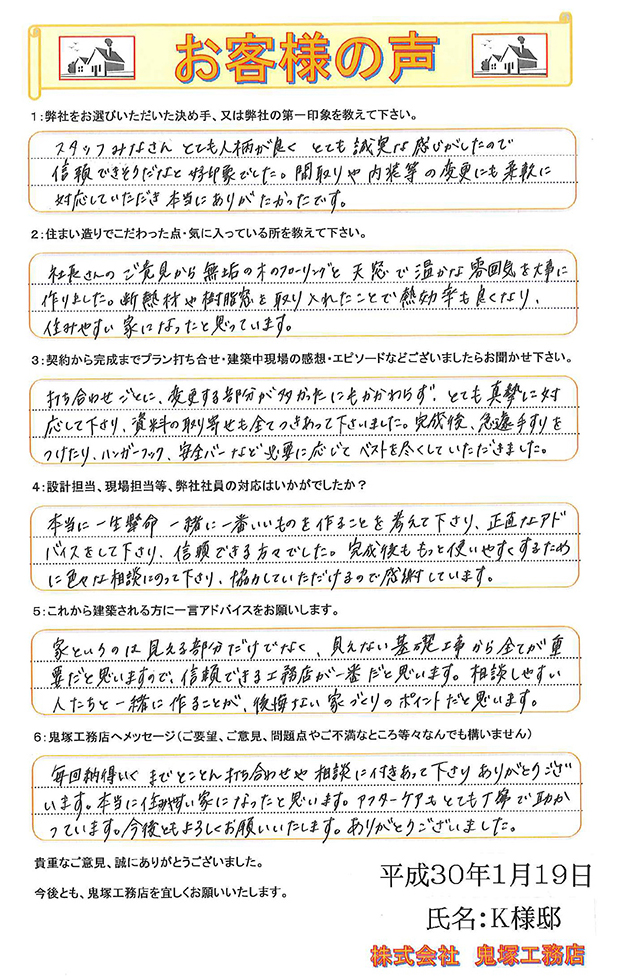 お客様の声
1:弊社をお選びいただいた決め手、又は弊社の第一印象を教えて下さい。
スタッフみなさん とても人柄が良く とても誠実な感じがしたので
信頼できそうだなと好印象でした。間取りや内装等の変更にも柔軟に
対応していただき本当にありがたかったです。
2:住まい造りでこだわった点・気に入っている所を教えて下さい。
社長さんのご意見から無垢の木のフローリングと天窓で温かな雰囲気を大事に
作りました。断熱材や樹脂窓を取り入れたことで熱効率も良くなり、
住みやすい家になったと思っています。
3:契約から完成までプラン打ち合せ・建築中現場の感想・エピソードなどございましたらお聞かせ下さい。
打ち合わせごとに、変更する部分が多かったにもかかわらず、とても真摯に対
応して下さり、資料の取り寄せも全てつきあって下さいました。完成後、急遽手すりを
つけたり、ハンガーフック、安全バーなど必要に応じてベストを尽くしていただきました。
4:設計担当、現場担当等、弊社社員の対応はいかがでしたか?
本当に一生懸命 一緒に一番いいものを作ることを考えて下さり、正直なアド
バイスをして下さり、信頼できる方々でした。完成後ももっと使いやすくするため
に色々な相談にのって下さり、協力していただけるので感謝しています。
5:これから建築される方に一言アドバイスをお願いします。
家というのは見える部分だけでなく、見えない基礎工事から全てが重
要だと思いますので、信頼できる工務店が一番だと思います。相談しやすい
人たちと一緒に作ることが、後悔ない家づくりのポイントだと思います。
6:鬼塚工務店へメッセージ(ご要望、ご意見、問題点やご不満なところ等々なんでも構いません)
毎回納得いくまでとことん打ち合わせや相談に付きあって下さりありがとうござい
います。本当に住みやすい家になったと思います。アフターケアもとても丁寧で助か
っています。今後ともよろしくお願いいたします。ありがとうございました。
貴重なご意見、誠にありがとうございました。
今後とも、鬼塚工務店を宜しくお願いいたします。
平成30年1月19日
氏名:K様邸
株式会社 鬼塚工務店